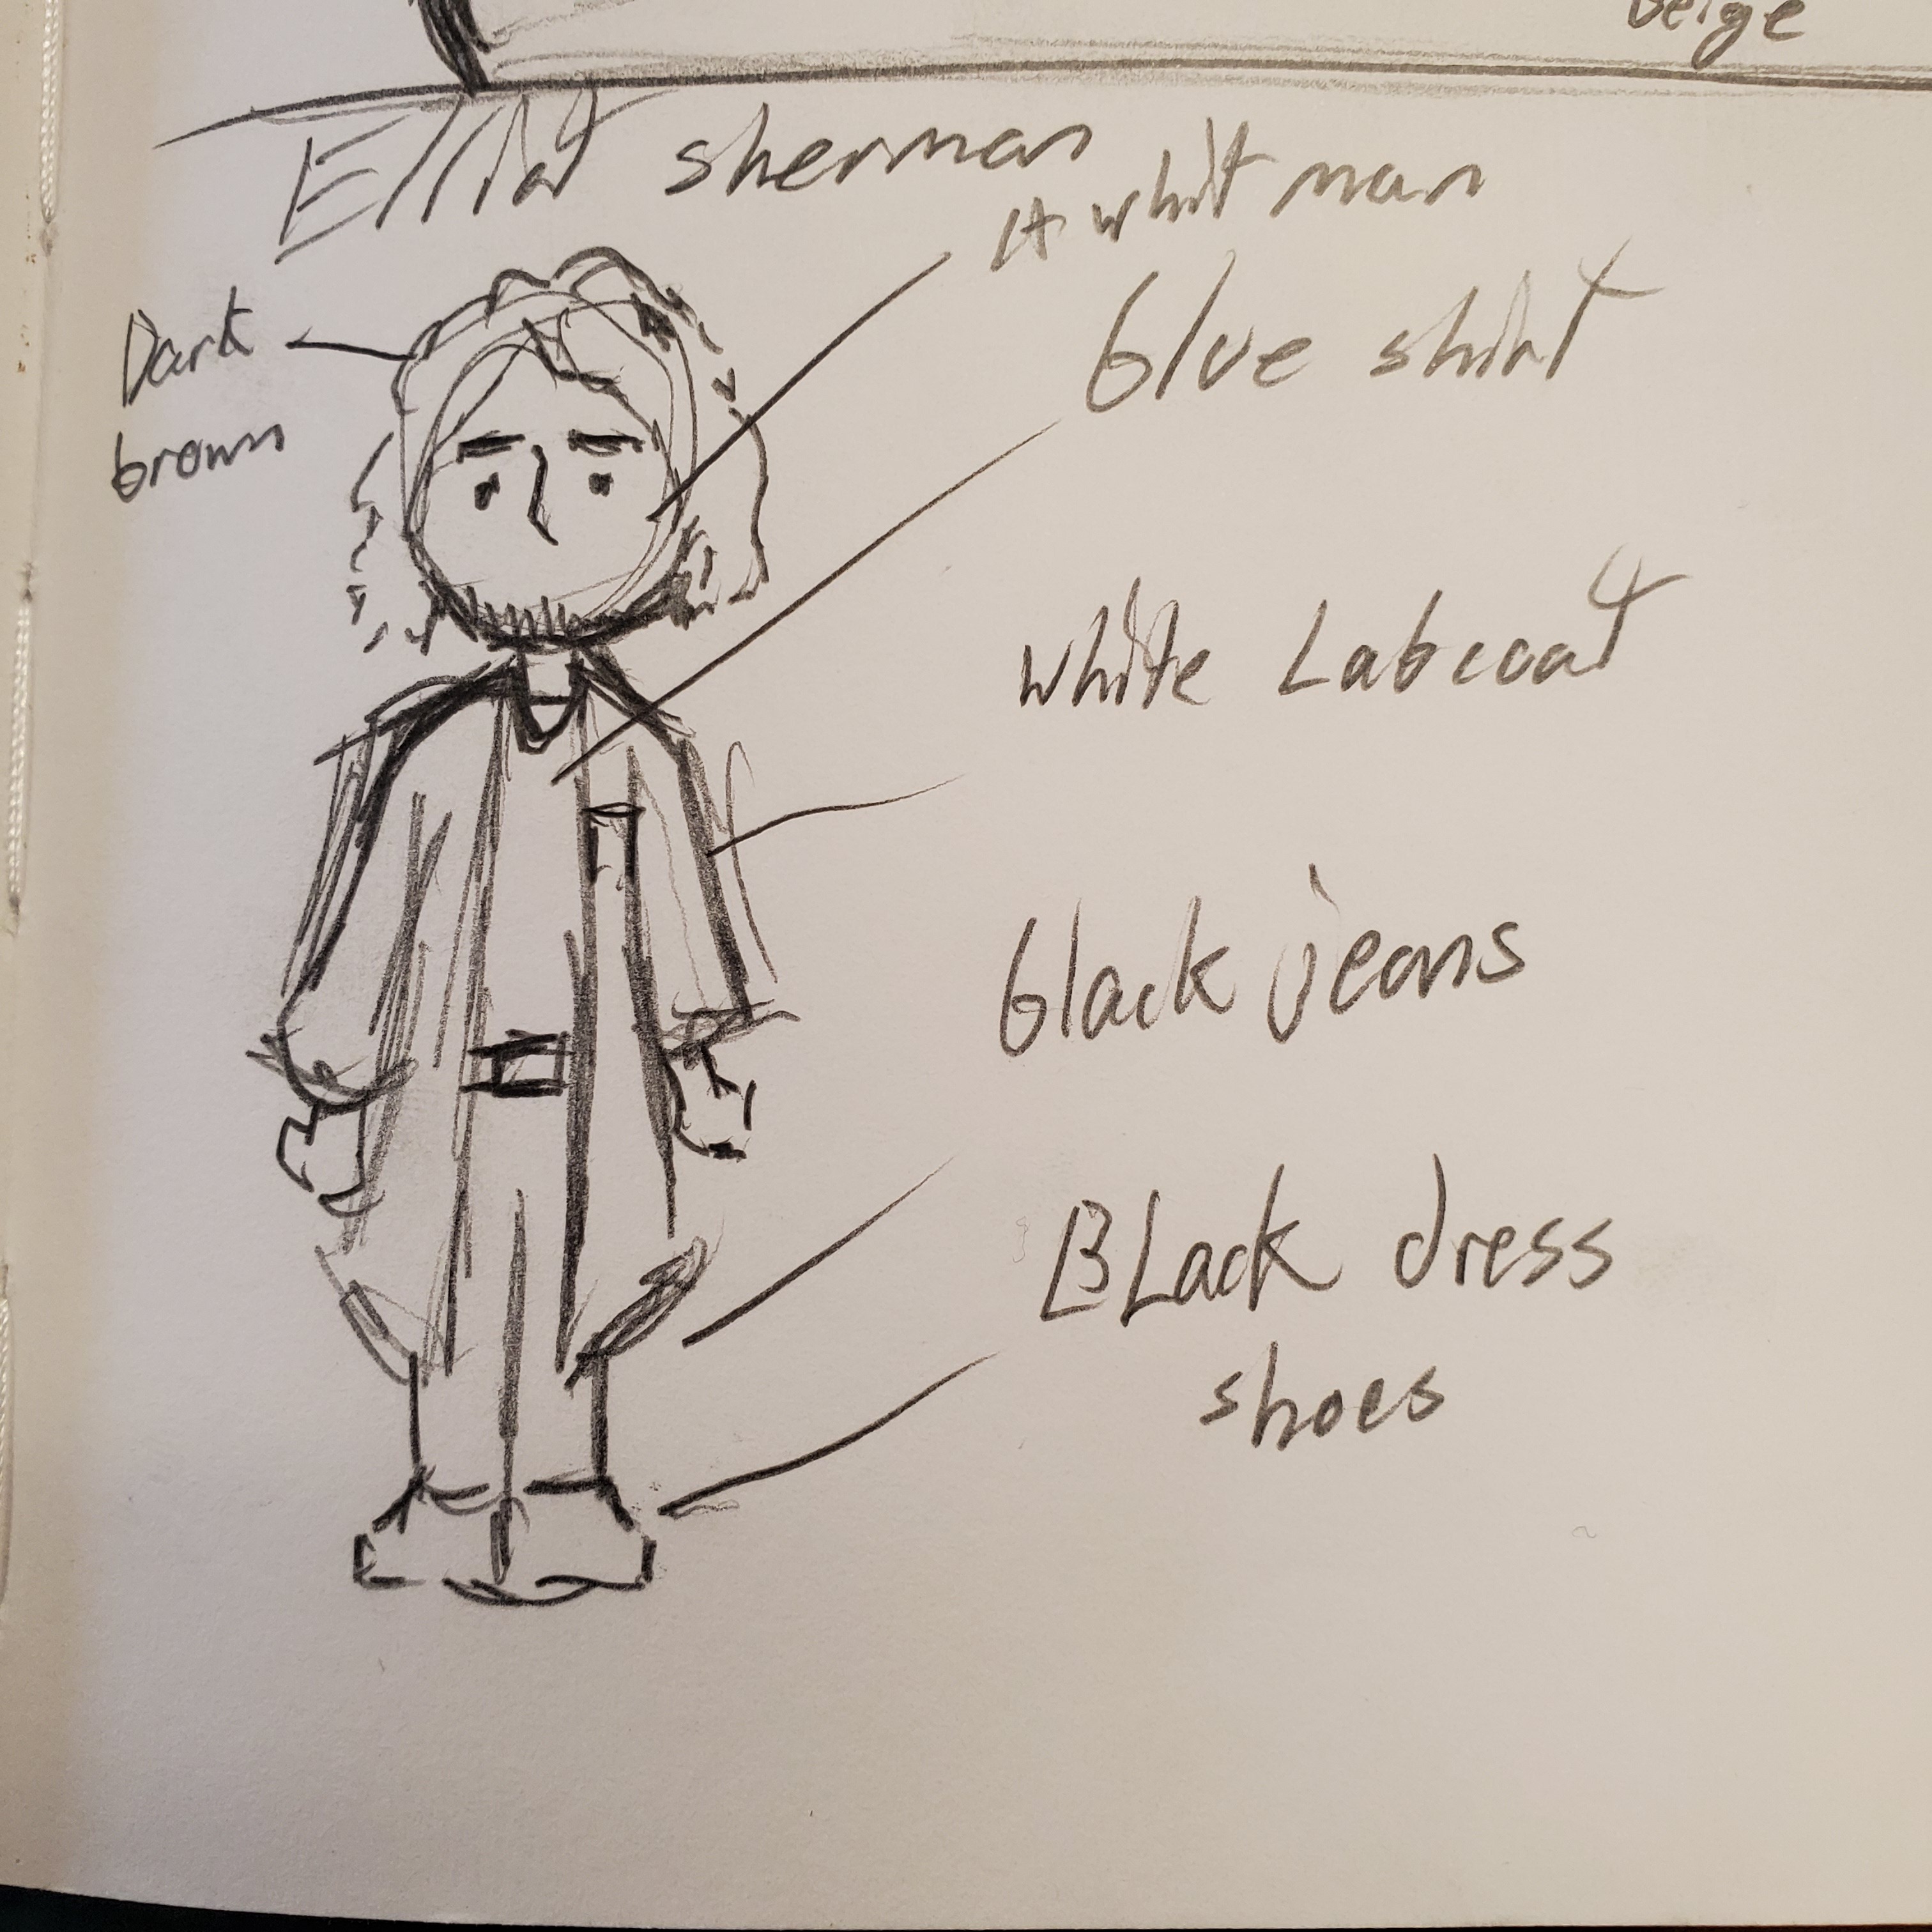 beige
Elliot sherman
A whit man
Dark
brown
blue shirt
white Labcoat
black jeans
BLack dress
shoes